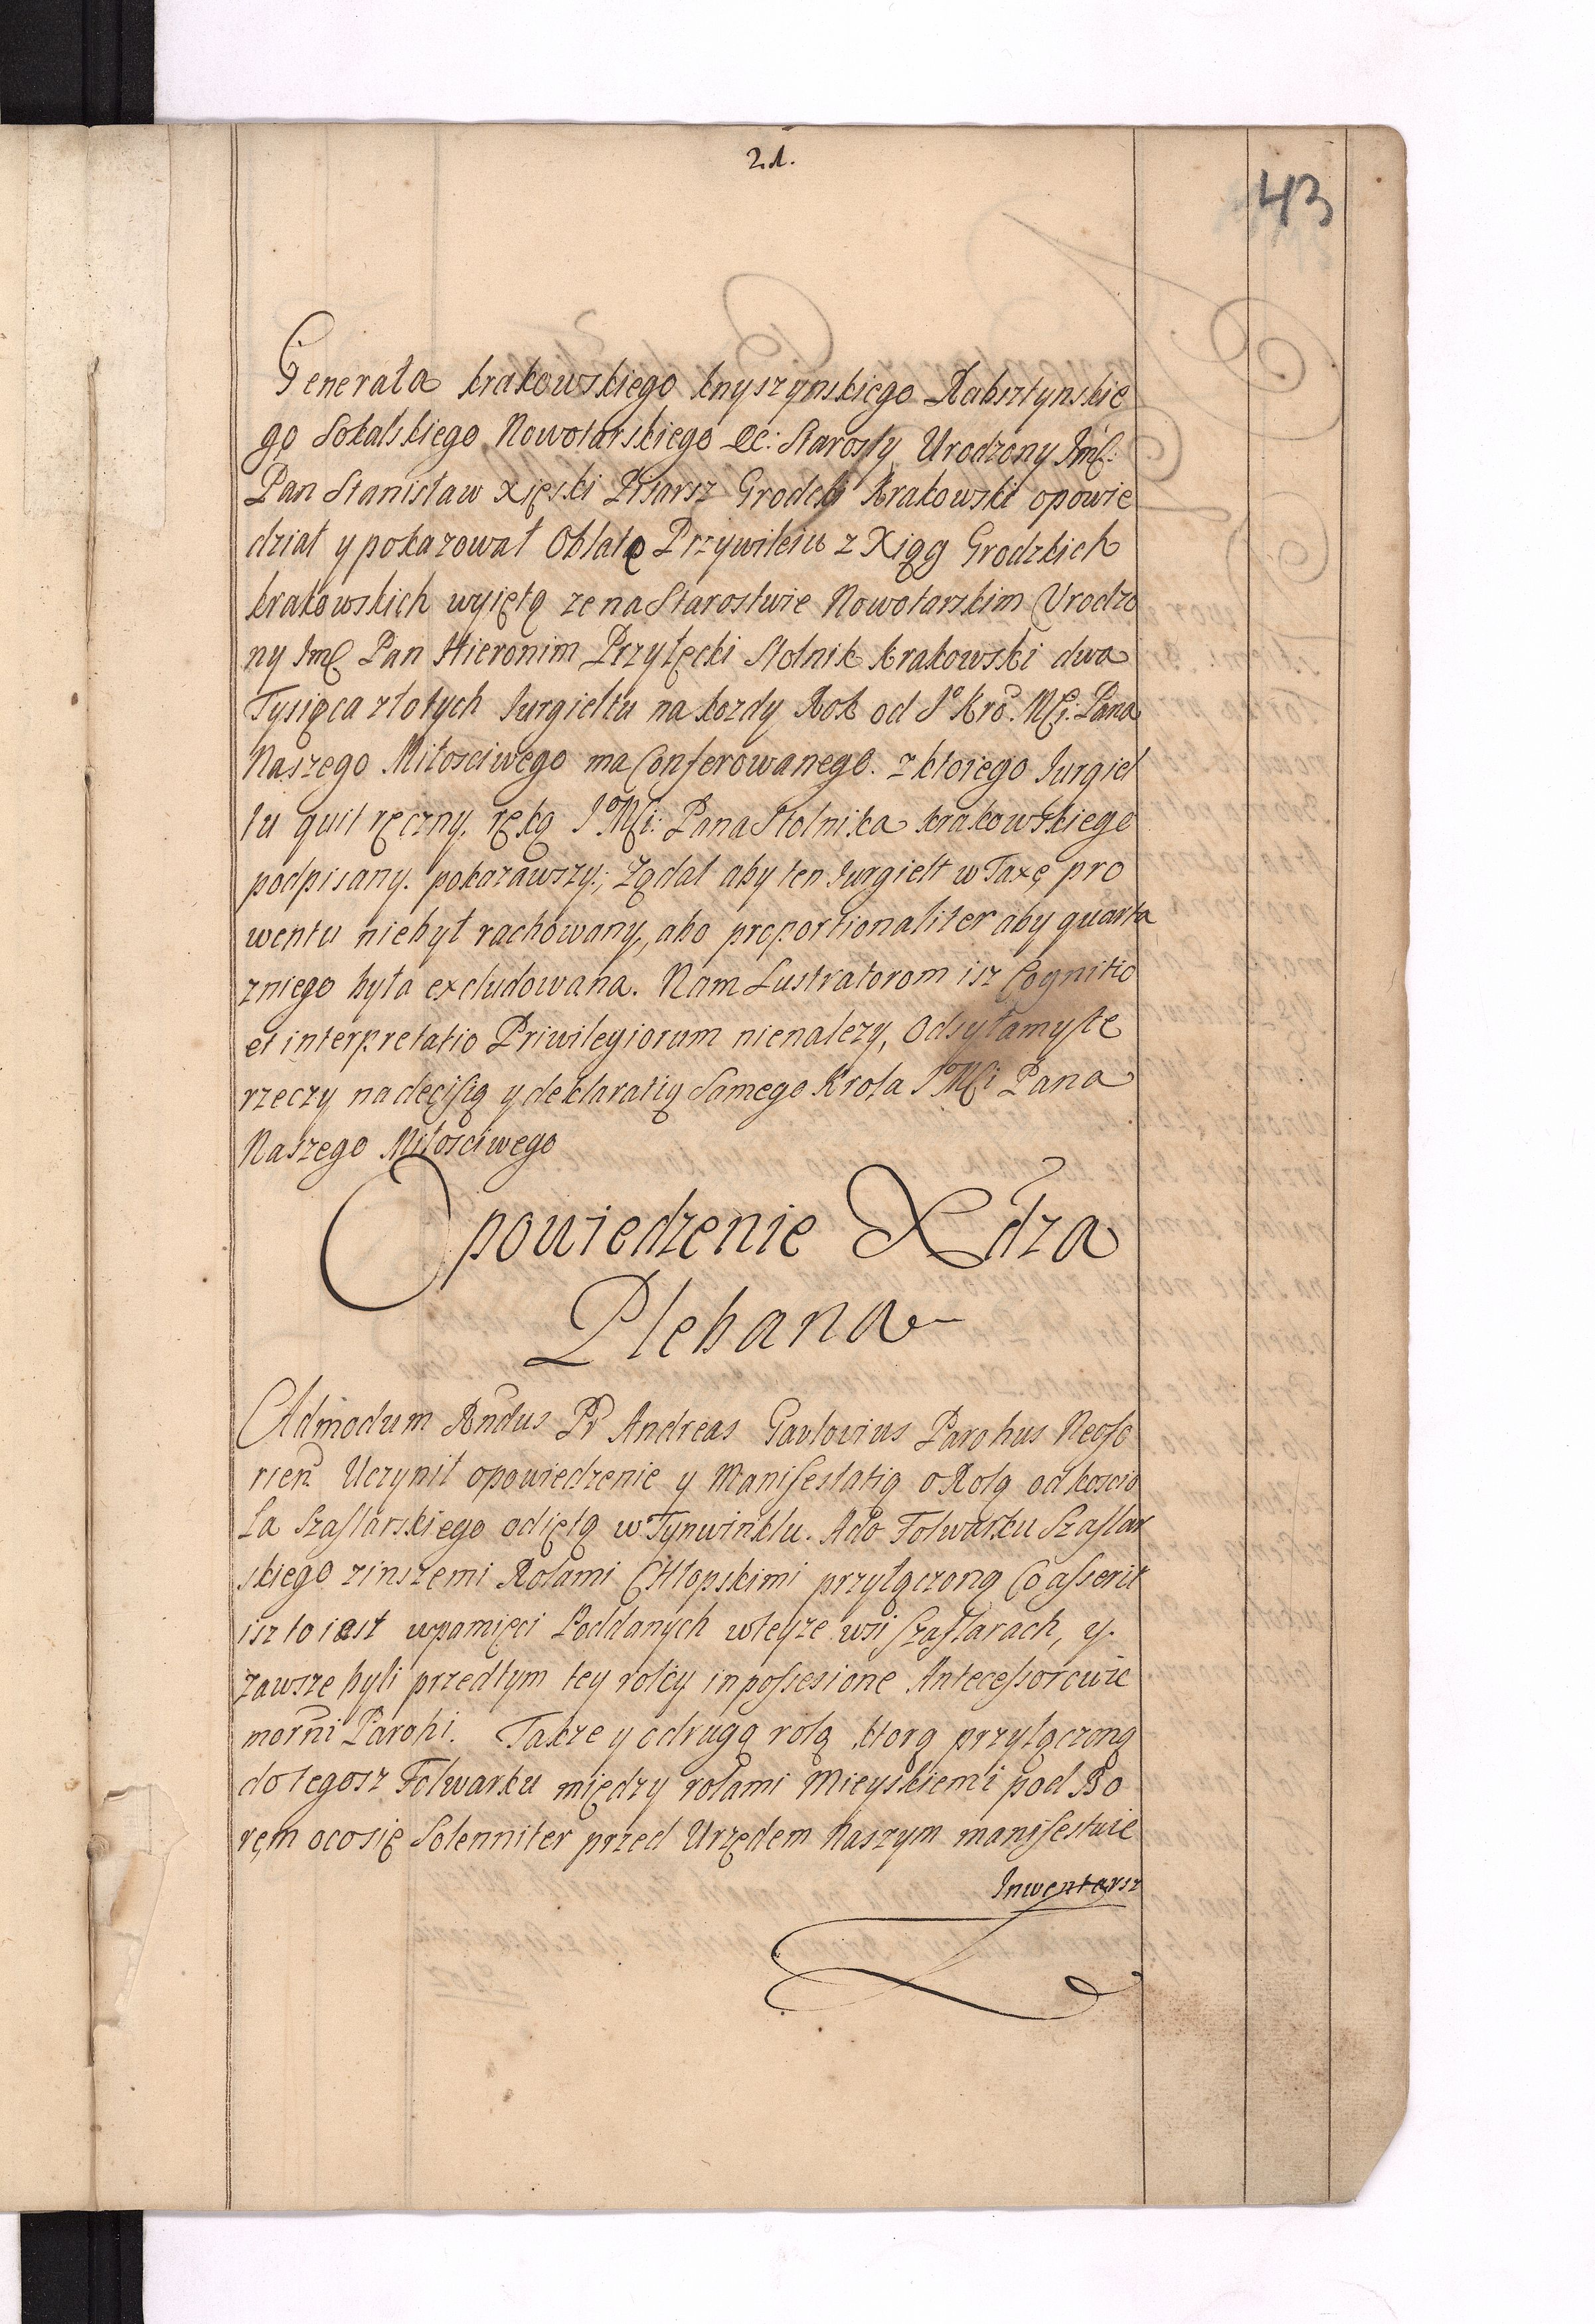 21.
43
Generała krakowskiego knyszynskiego Rabsztynskie
go Sokalskiego Nowotarskiego &c: Starosty Urodzony Jmć:
Pan Stanisław Xięski Pisarsz Grodcki Krakowski opowie
dział y pokazował Oblatę Przywileiu z Xiąg Grodzkich
krakowskich wyiętą ze na Starostwie Nowotarskim Urodzo
ny Jmć Pan Hieronim Przyłęcki Stolnik krakowski dwa
Tysiąca złotych Jurgieltu na kozdy Rok od Jº Kró. Mći: Pana
Naszego Miłosciwego ma Conferowanego. z ktorego Jurgiel
tu quit ręczny, ręką Jº Mći: Pana Stolnika krakowskiego
podpisany. pokazawszy; Ządal aby ten Jurgielt w Taxę pro
wentu niebył rachowany, abo proportionaliter aby quarta
zniego była excludowana. Nam Lustratorom isz Cognitio
et interpretatio Priwilegiorum nienalezy, Odsyłamy te
rzeczy na decisią y deklaratią Samego Krola J Mći Pana
Naszego Miłosciwego
Opowiedzenie Xdza
Plebana
Admodum Rndus Pr Andreas Gavlovius Parohus Neofo
rien Uczynił opowiedzenie y Manifestatią o Rolą od koscio
ła Szaflarskiego odiętą w Tynwinklu. Ado Folwarku Szaflar
skiego zinszemi Rolami CHłopskimi przyłączoną Co asserit
isz to iest wpamięci Poddanych wteyze wsi Szaflarach, y.
zawsze byli przedtym tey roley in possesione Antecessorowie
morni Parohi. Takze y odrugą rolą ktorą przyłączoną
do tegosz Folwarku między rolami Mieyskiemi pod Bo
rem ocosię Solenniter przed Urzędem Naszym manifestuie
Inwentarsz